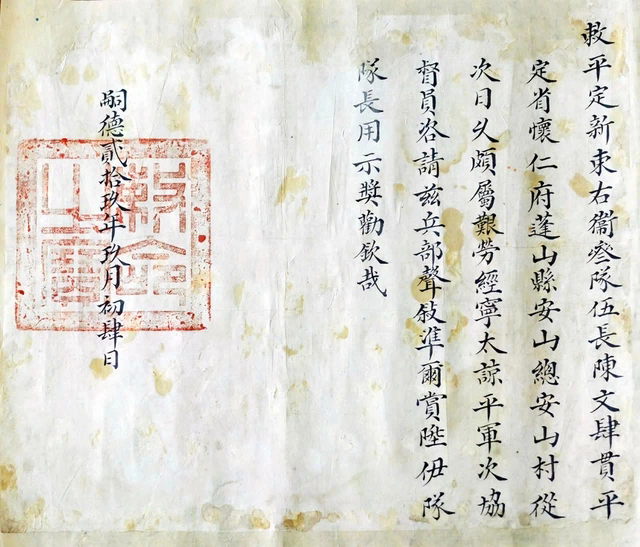 敕平定新束右衞叄隊伍長陳文肆貫平
定省懷仁府蓬山縣安山總安山村從
次日久頗屬艱劳經寧太諒平軍次協
督員咨請兹兵部聲敍準爾賞陞伊隊
隊長用示奬勸欽哉
嗣德貳拾玖年玖月初肆日
敕命之寶